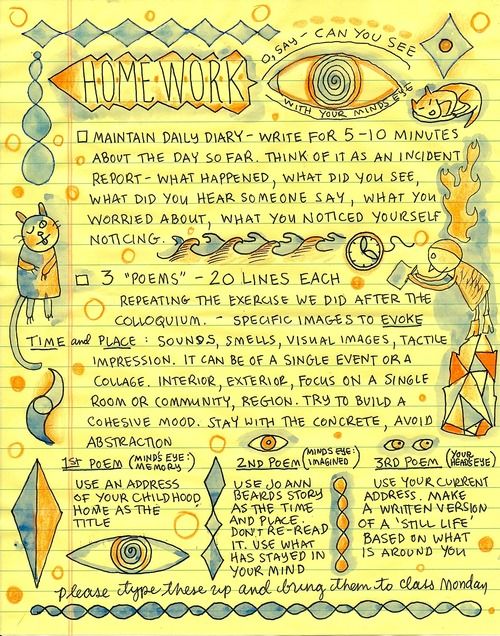 HOMEWORK
O, SAY - CAN YOU SEE,
WITH YOUR MINDS EYE
MAINTAIN DAILY DIARY - WRITE FOR 5-10 MINUTES
ABOUT THE DAY SO FAR. THINK OF IT AS AN INCIDENT
REPORT - WHAT HAPPENED, WHAT DID YOU SEE,
WHAT DID YOU HEAR SOMEONE SAY, WHAT YOU
WORRIED ABOUT, WHAT YOU NOTICED YOURSELF
NOTICING.
3 "POEMS" - 20 LINES EACH
REPEATING THE EXERCISE WE DID AFTER THE
COLLOQUIUM. - SPECIFIC IMAGES TO EVOKE
TIME and PLACE: SOUNDS, SMELLS, VISUAL IMAGES, TACTILE
IMPRESSION. IT CAN BE OF A SINGLE EVENT OR A
COLLAGE. INTERIOR, EXTERIOR, FOCUS ON A SINGLE
ROOM OR COMMUNITY, REGION. TRY TO BUILD A
COHESIVE MOOD. STAY WITH THE CONCRETE, AVOID
ABSTRACTION
1ST POEM (MIND'S EYE: MEMORY)
USE AN ADDRESS
OF YOUR CHILDHOOD
HOME AS THE
TITLE
2ND POEM (MINDS EYE: IMAGINED)
USE JO ANN
BEARDS STORY
AS THE TIME
AND PLACE.
DON'T RE-READ
IT. USE WHAT
HAS STAYED IN
YOUR MIND
3RD POEM (YOUR HEAD'S EYE)
USE YOUR CURRENT
ADDRESS. MAKE
A WRITTEN VERSION
OF A 'STILL LIFE'
BASED ON WHAT
IS AROUND YOU
please type these up and bring them to class Monday